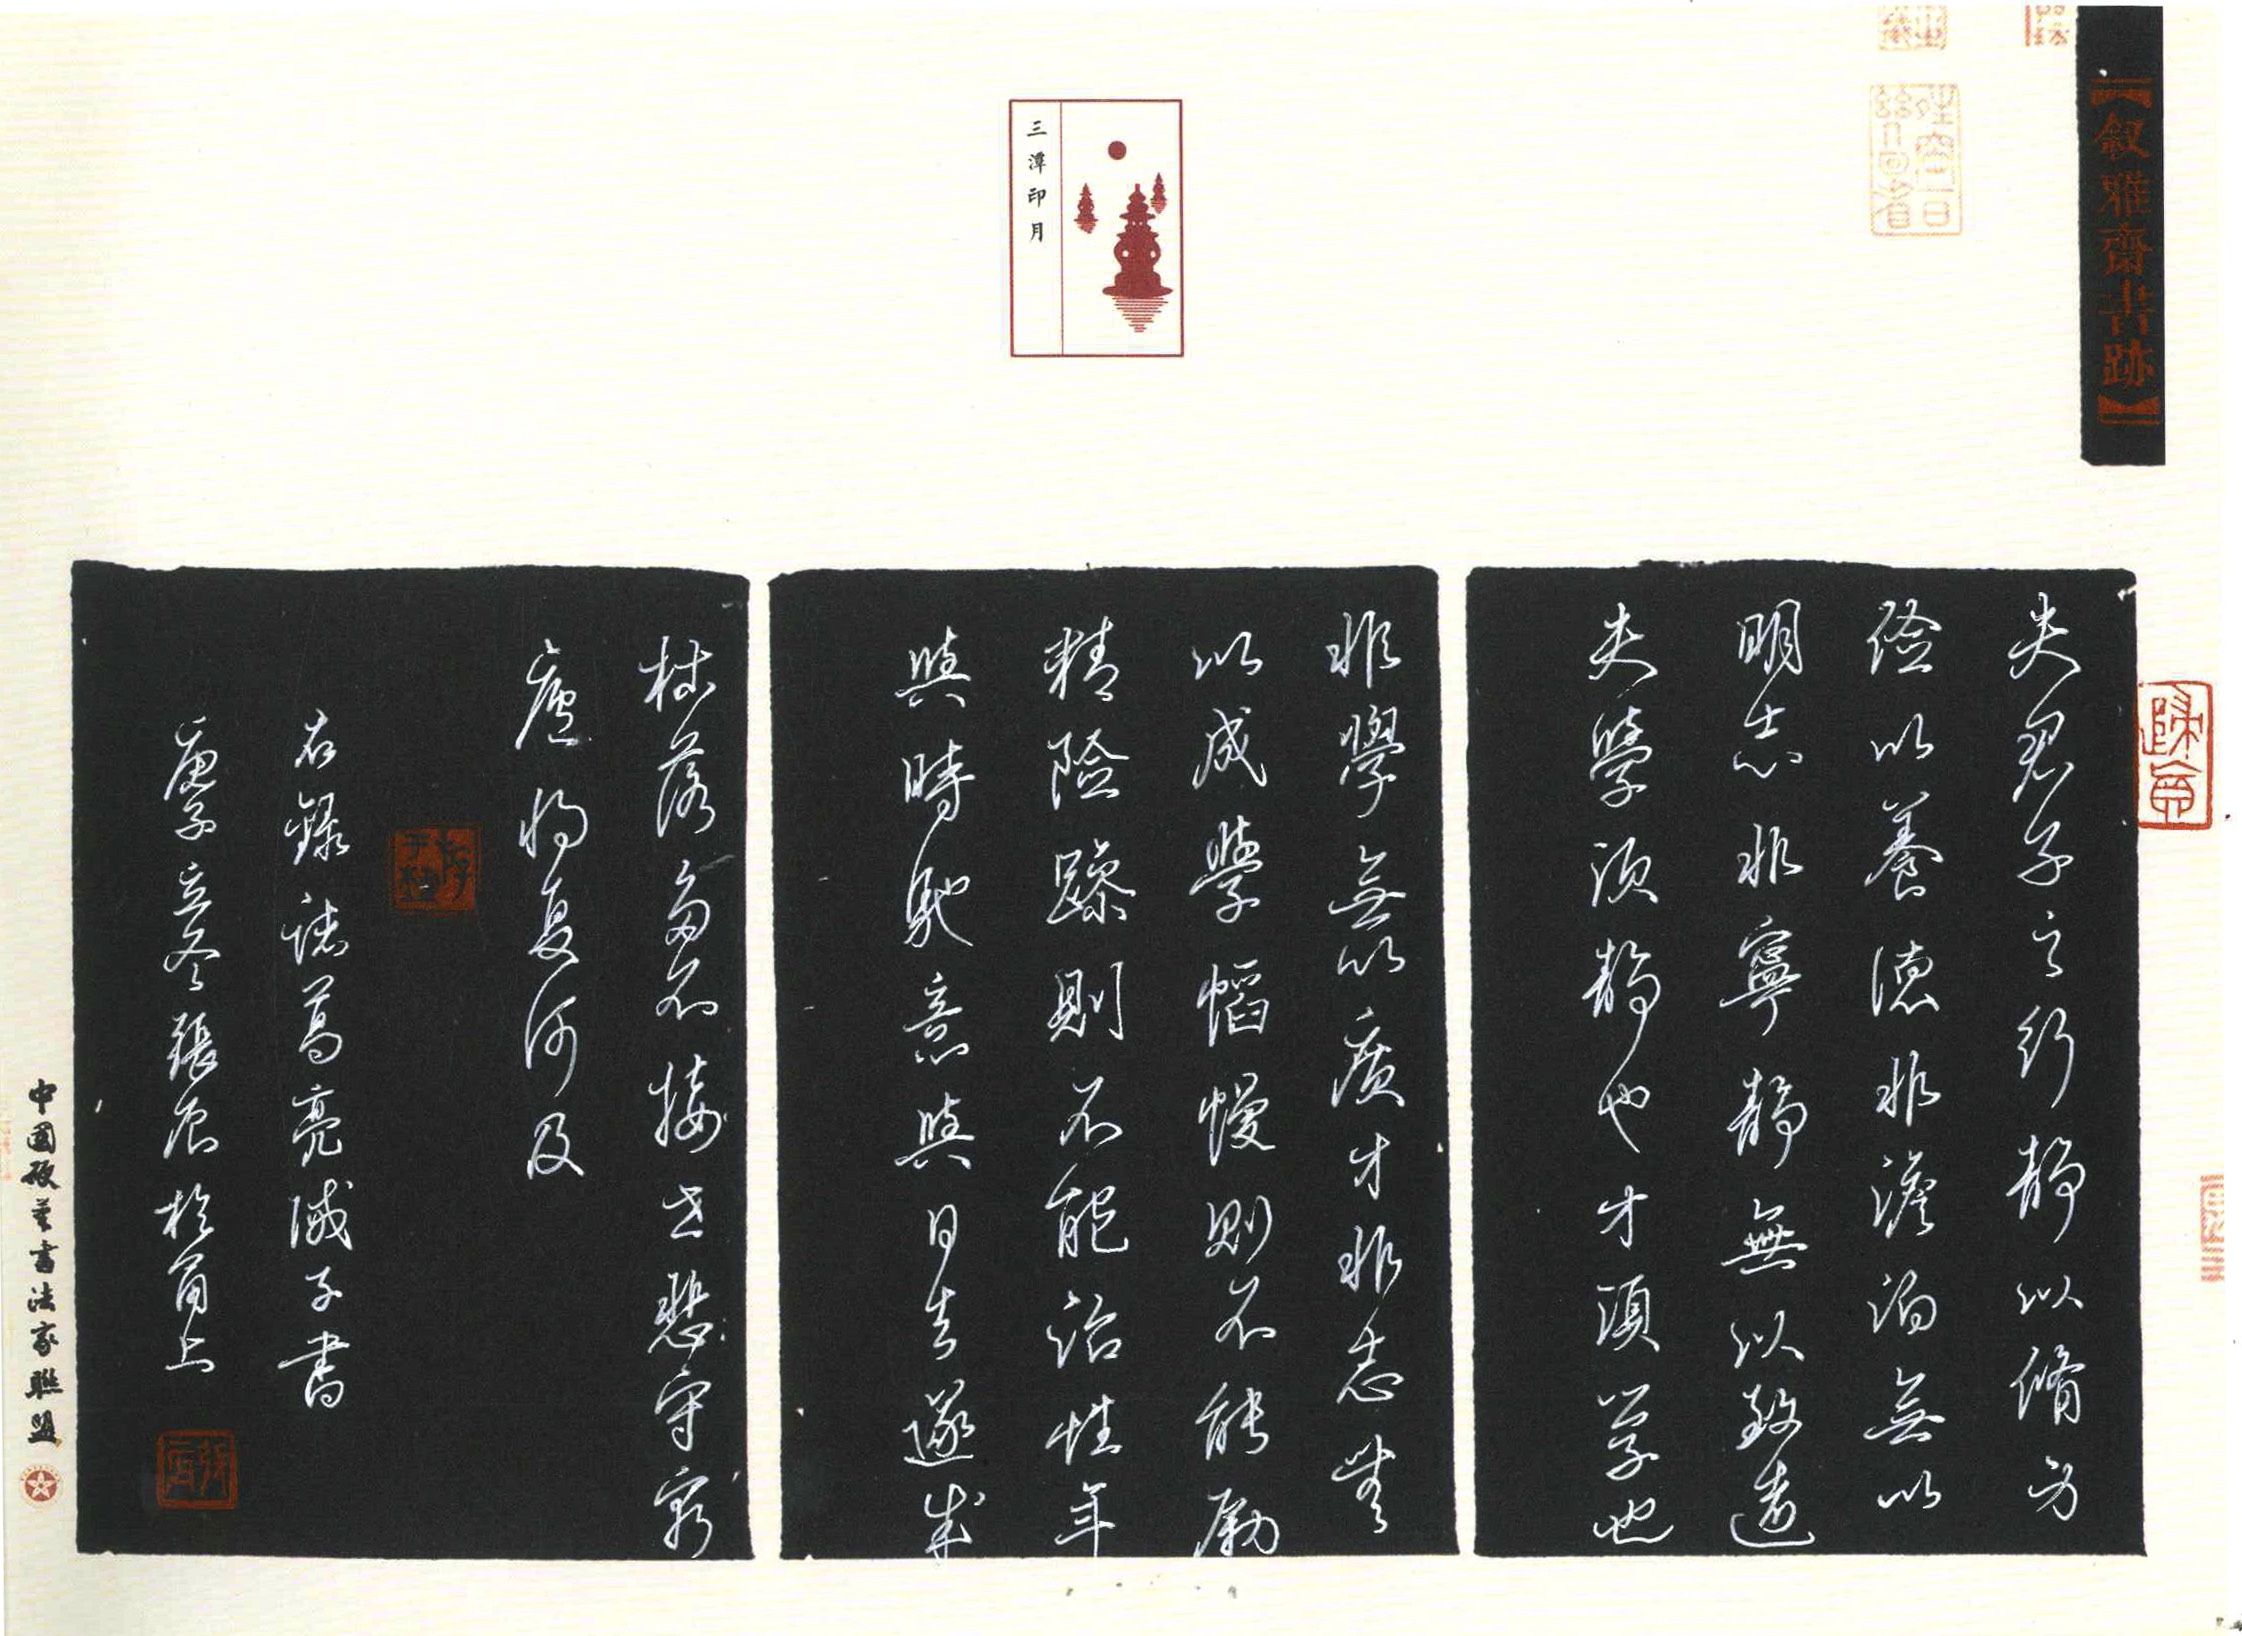 【叙雅齋書跡】
三潭印月
夫君子之行靜以脩身
儉以養德非澹泊無以
明志非寧靜無以致遠
夫學須靜也才須學也
非學無以廣才非志無
以成學慆慢則不能勵
精險躁則不能治性年
與時馳意與日去遂成
枯落多不接世悲守窮
廬將復何及
右錄諸葛亮誡子書
庚子立冬張宸於甬上
中國硬筆書法家聯盟